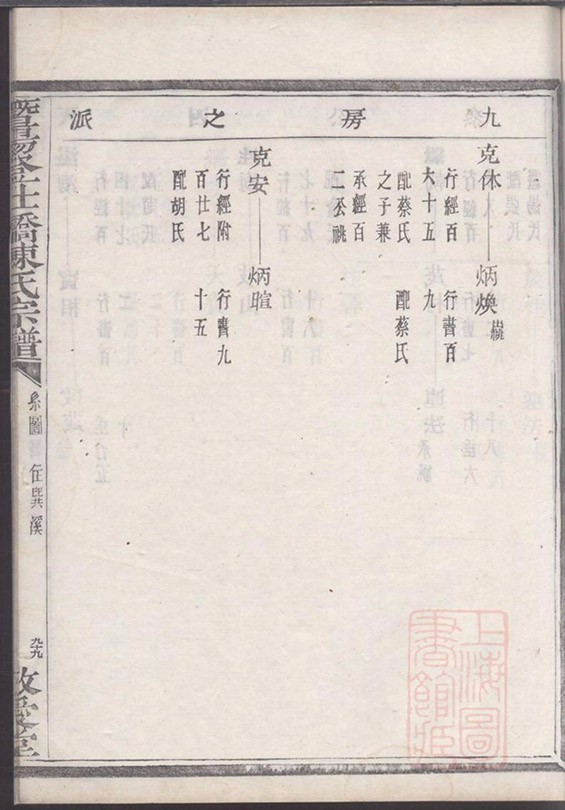 九房之派
克休 炳煥 繼
行經百 行書百
六十五 九
配蔡氏 配蔡氏
之子兼
承經百
公祧
克安 炳暄
行經附 行書九
百廿七 十五
配胡氏
橋陳氏宗譜
系圖
住巽溪
九十九
上海圖書館藏